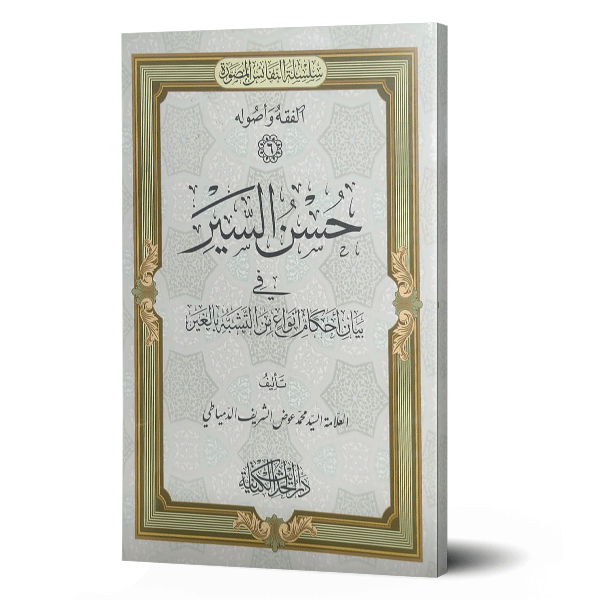 سلسلة النفائس المصورة
الفقه وأصوله
٦
حُسْنُ السَّيْرِ
في
بيان أحكام أنواع من التشبه بالغير
تأليف
العلامة السيد محمد عوض الشريف الدمياطي
دار الحداثة الكتانية